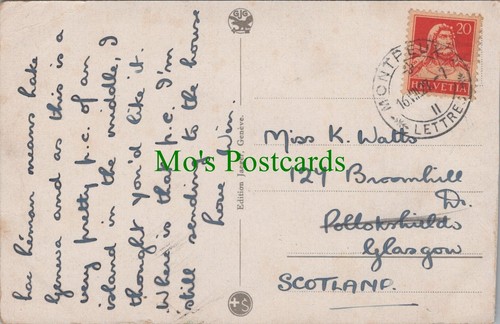 Lac Léman means Lake
Geneva and as this is a
very pretty p.c. of an
island in the middle, I
thought you'd like it.
Where is that p.c. I'm
still sending to the house
love Win.
Edition Jaeger, Genève.
GJG
20
HELVETIA
MONTREUX
II
LETTRES
Miss K. Watts
124 Broomhill
D.
Pollokshields
Glasgow
SCOTLAND.
Mo's Postcards